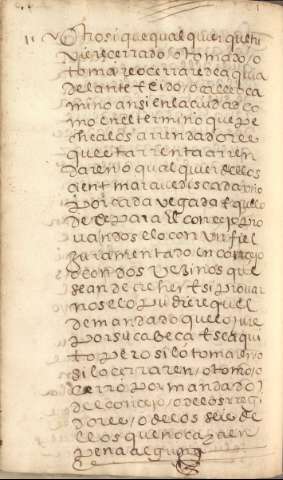 Otrosi que qual quier que tu
viere cerrado / o tomado / o
tomare o cerrare de aqui a
delante exido / o calle o ca
mino ansi en la ciudad co
mo en el termino que pe
che a los arrendadores
que esta rrenta arren
daren o qual quier de ellos
çient maravedis cada vno
por cada vegada e que lo
dexe para el concejo pro
uandoselo con vn fiel
juramentado en concejo
o con dos vezinos que
sean de creher e si prouar
no se lo pudiere quel
demandado que lo jure
por su cabeça e sea qui
to pero si lo tomaren o
si lo cerraren / o tomo / o
cerro por mandado
del concejo / o de los rregi
dores / o de los seis de
ellos que no cayan en
pena alguna